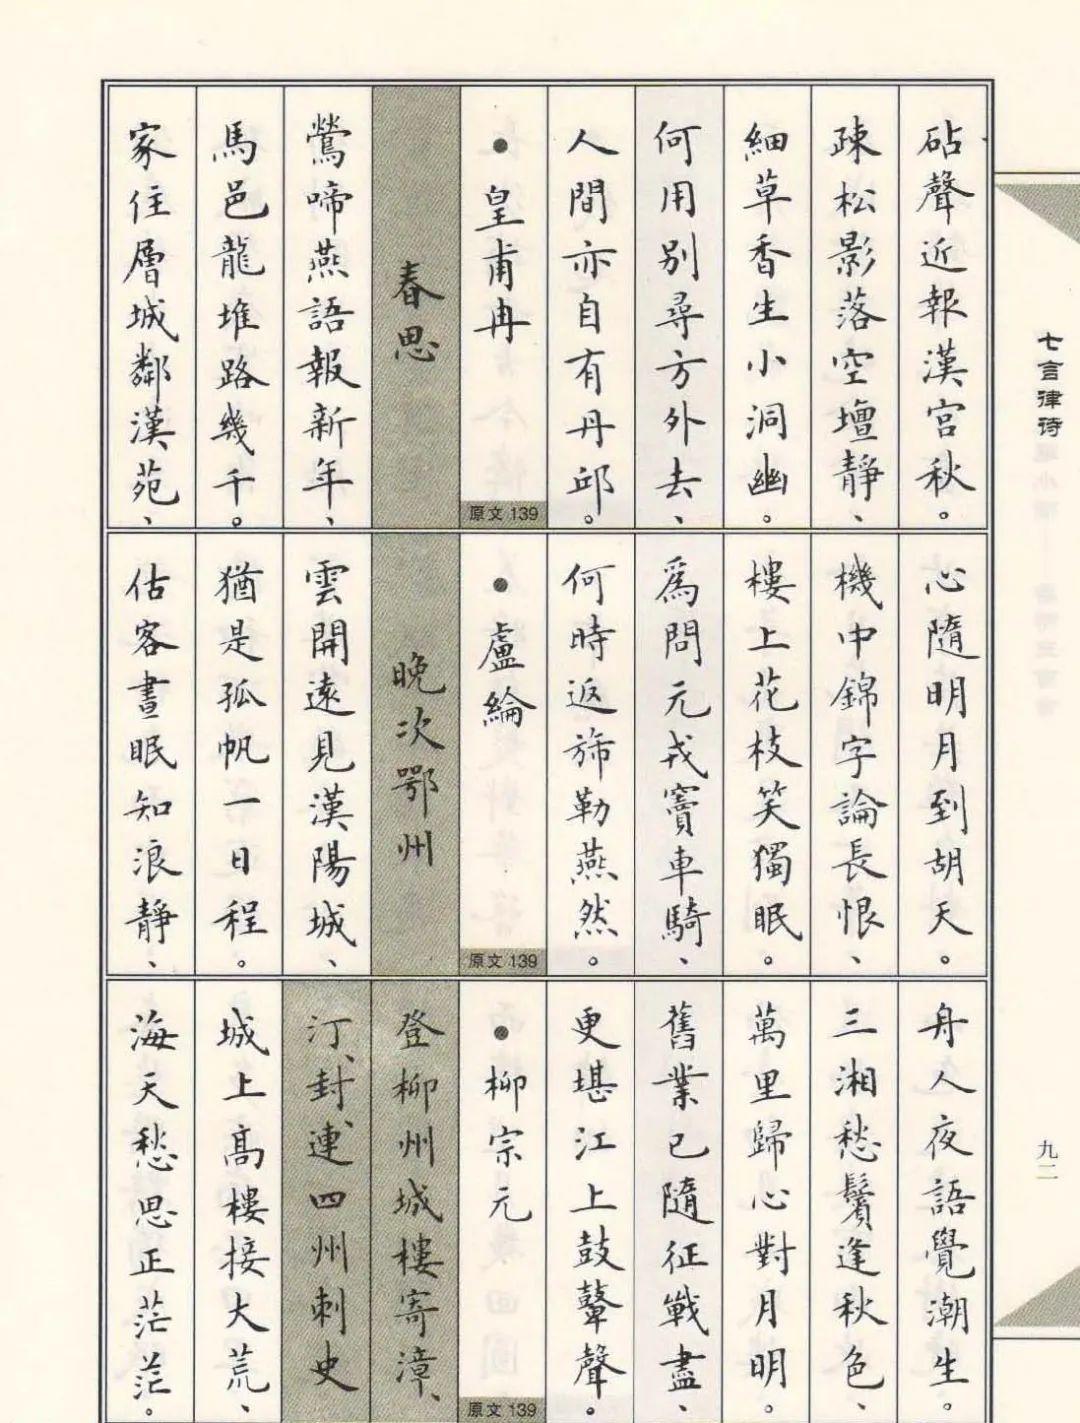 七言律诗
砧聲近報漢宮秋。
疎松影落空壇靜、
細草香生小洞幽。
何用別尋方外去、
人間亦自有丹邱。
• 皇甫冉
原文 139
春思
鶯啼燕語報新年、
馬邑龍堆路幾千。
家住層城鄰漢苑、
心隨明月到胡天。
機中錦字論長恨、
樓上花枝笑獨眠。
爲問元戎竇車騎、
何時返旆勒燕然。
• 盧綸
原文 139
晚次鄂州
雲開遠見漢陽城、
猶是孤帆一日程。
估客晝眠知浪靜、
舟人夜語覺潮生。
三湘愁鬢逢秋色、
萬里歸心對月明。
舊業已隨征戰盡、
更堪江上鼓鼙聲。
• 柳宗元
原文 139
登柳州城樓寄漳、
汀、封、連四州刺史
城上高樓接大荒、
海天愁思正茫茫。
九二